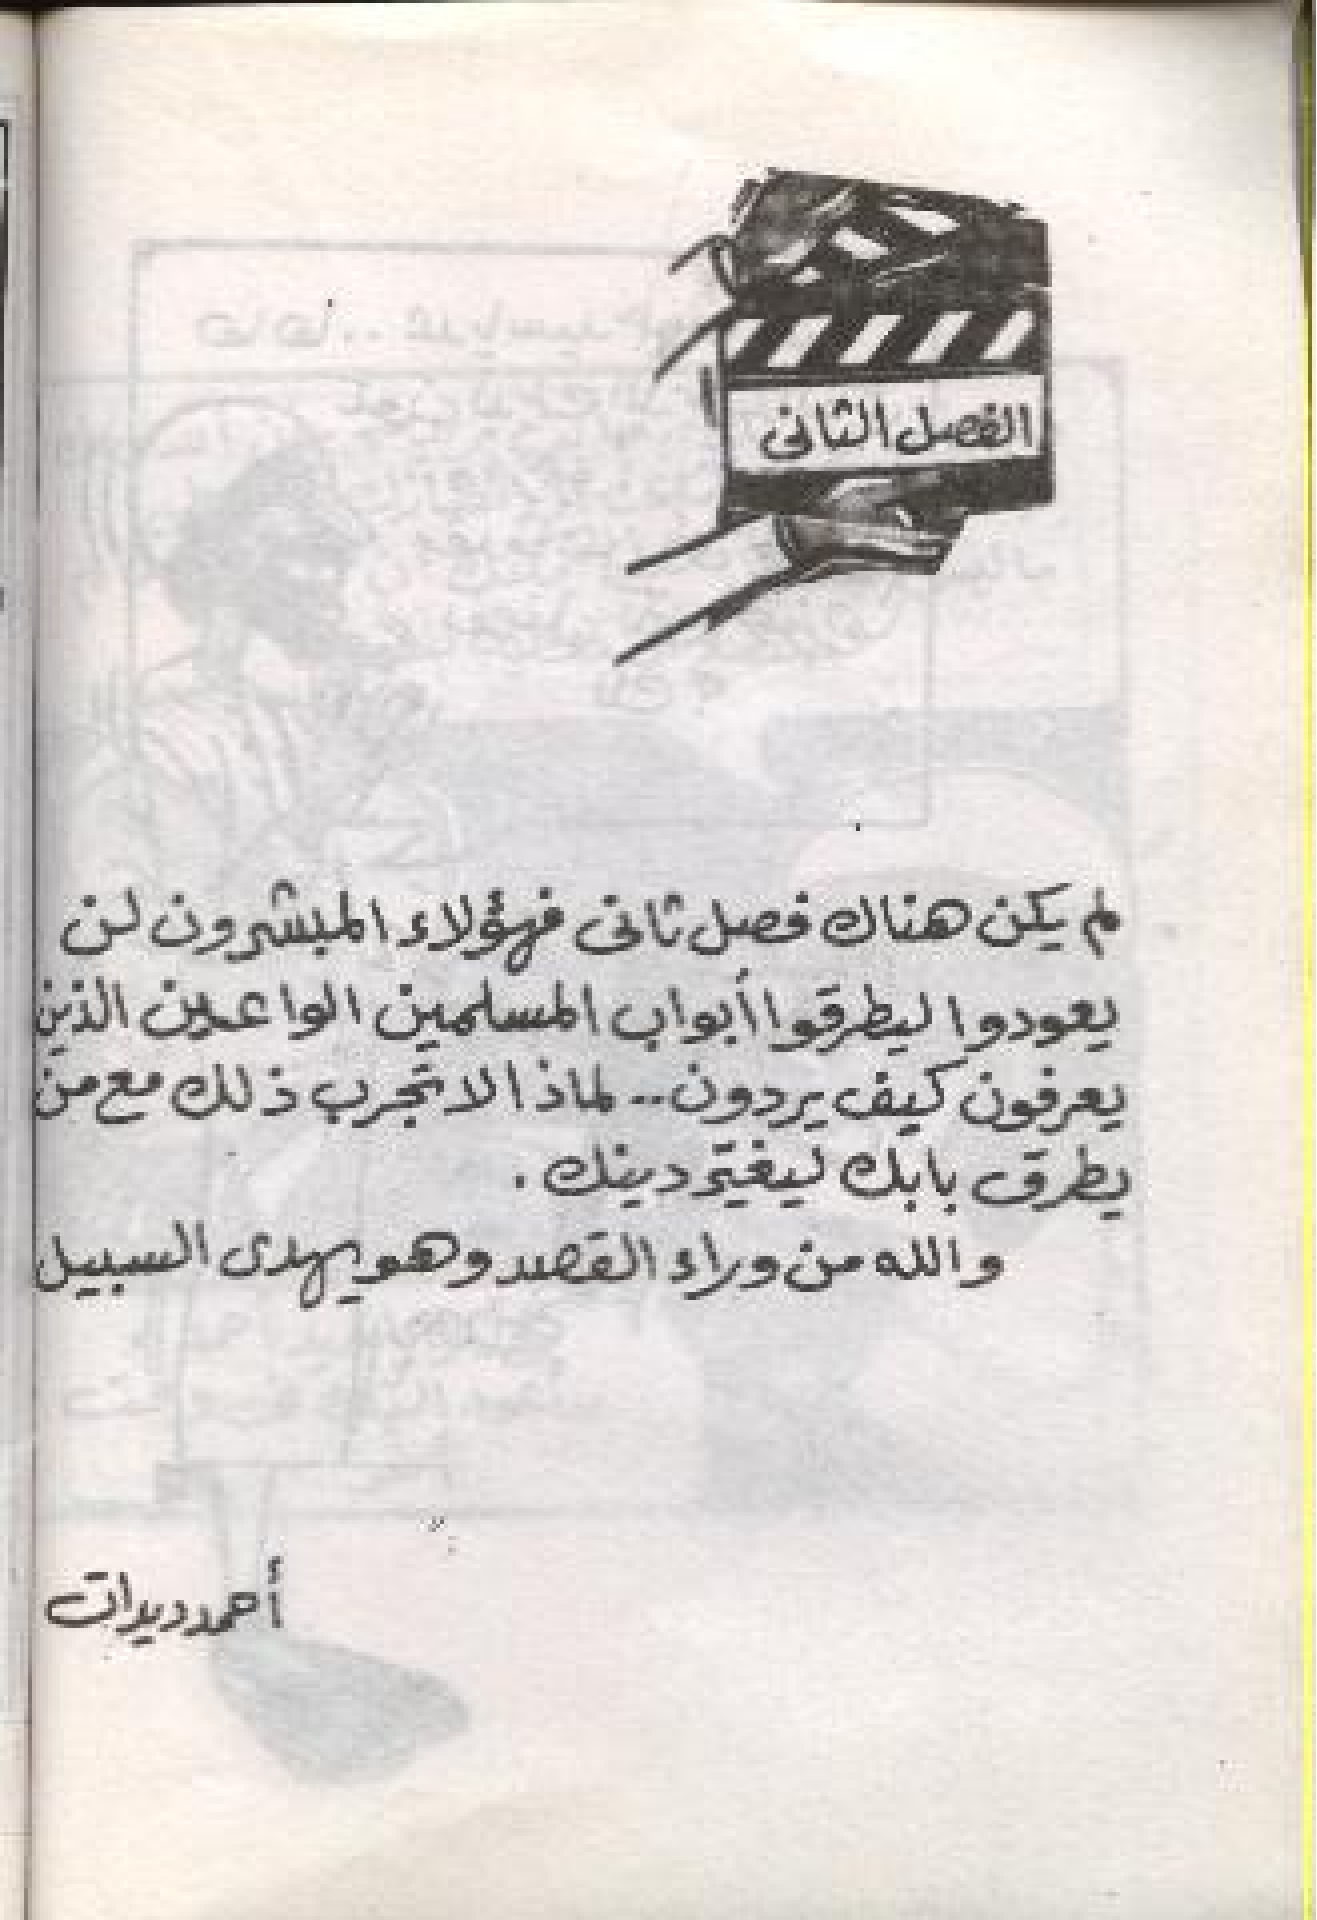 الفصل الثانى
لم يكن هناك فصل ثانى فهؤلاء المبشرون لن
يعودوا ليطرقوا أبواب المسلمين الواعدين الذين
يعرفون كيف يردون.. لماذا لا تجرب ذلك مع من
يطرق بابك ليغير دينك.
والله من وراء القصد وهو يهدى السبيل
أحمد ديدات